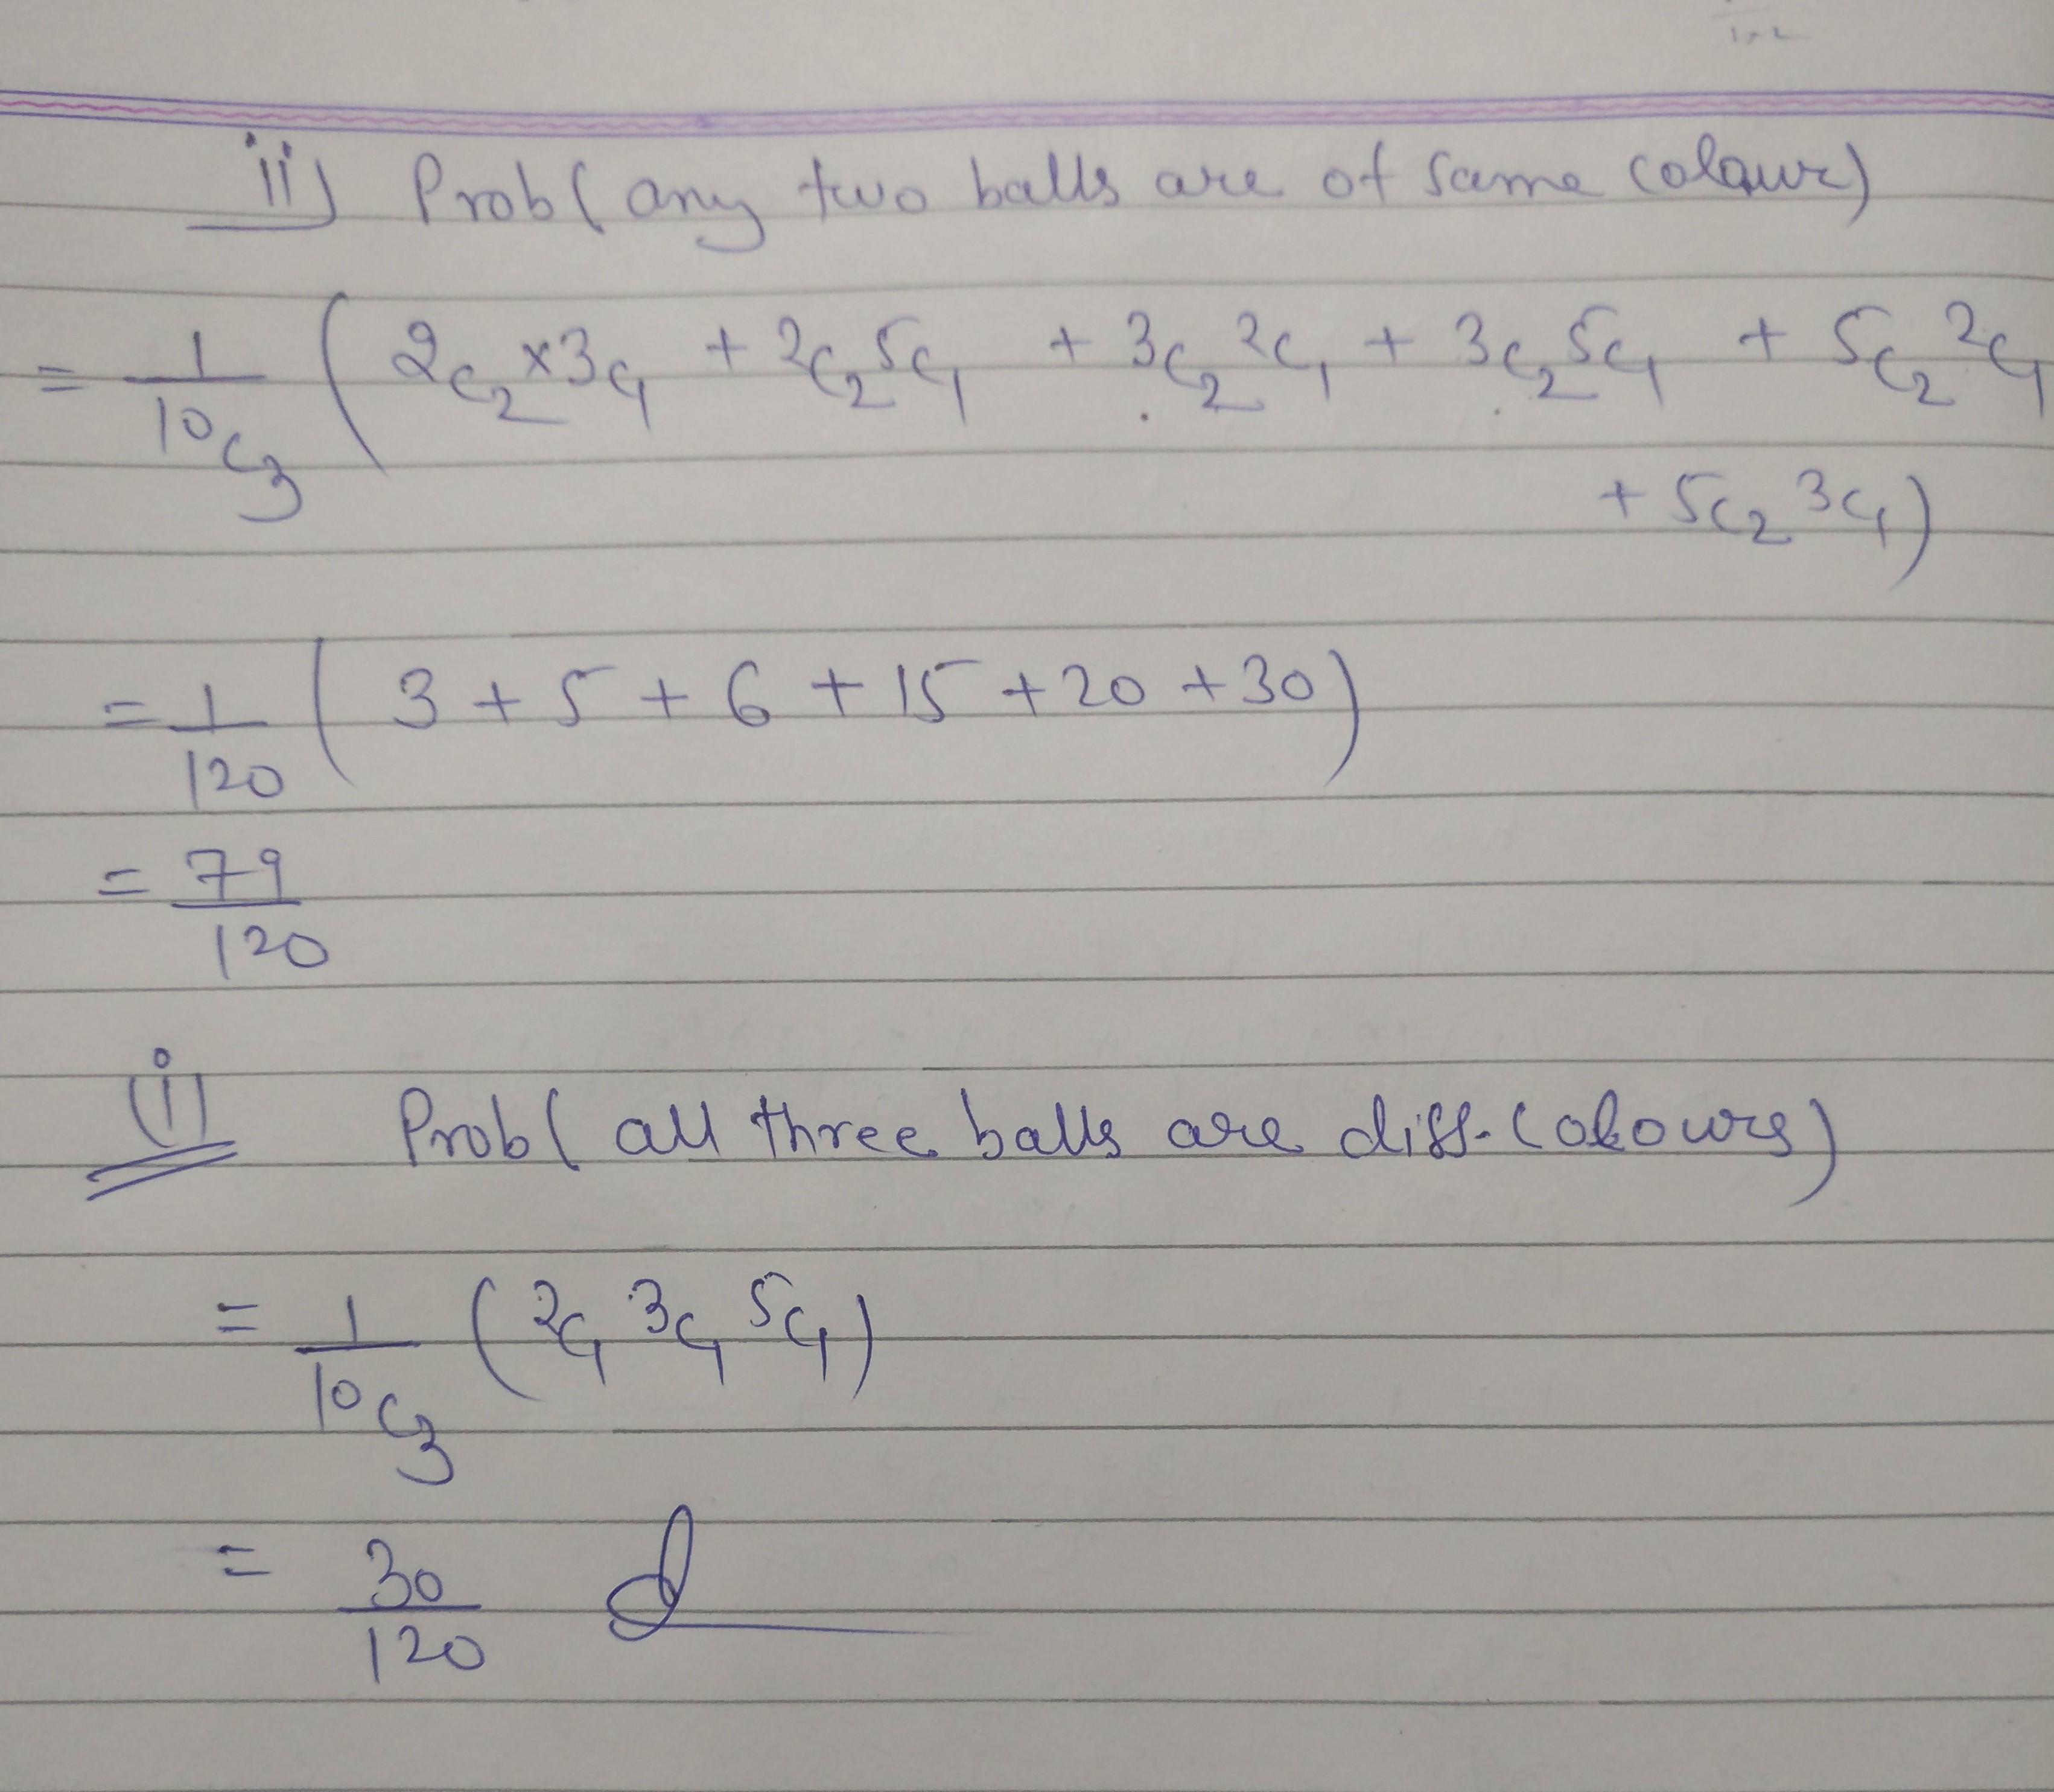 ii) Prob( any two balls are of same colour)
= 1/10C3 ( 2C2 × 3C1 + 2C2 5C1 + 3C2 2C1 + 3C2 5C1 + 5C2 2C1
+ 5C2 3C1 )
= 1/120 ( 3 + 5 + 6 + 15 + 20 + 30 )
= 79/120
(i) Prob( all three balls are diff. colours)
= 1/10C3 ( 2C1 3C1 5C1 )
= 30/120